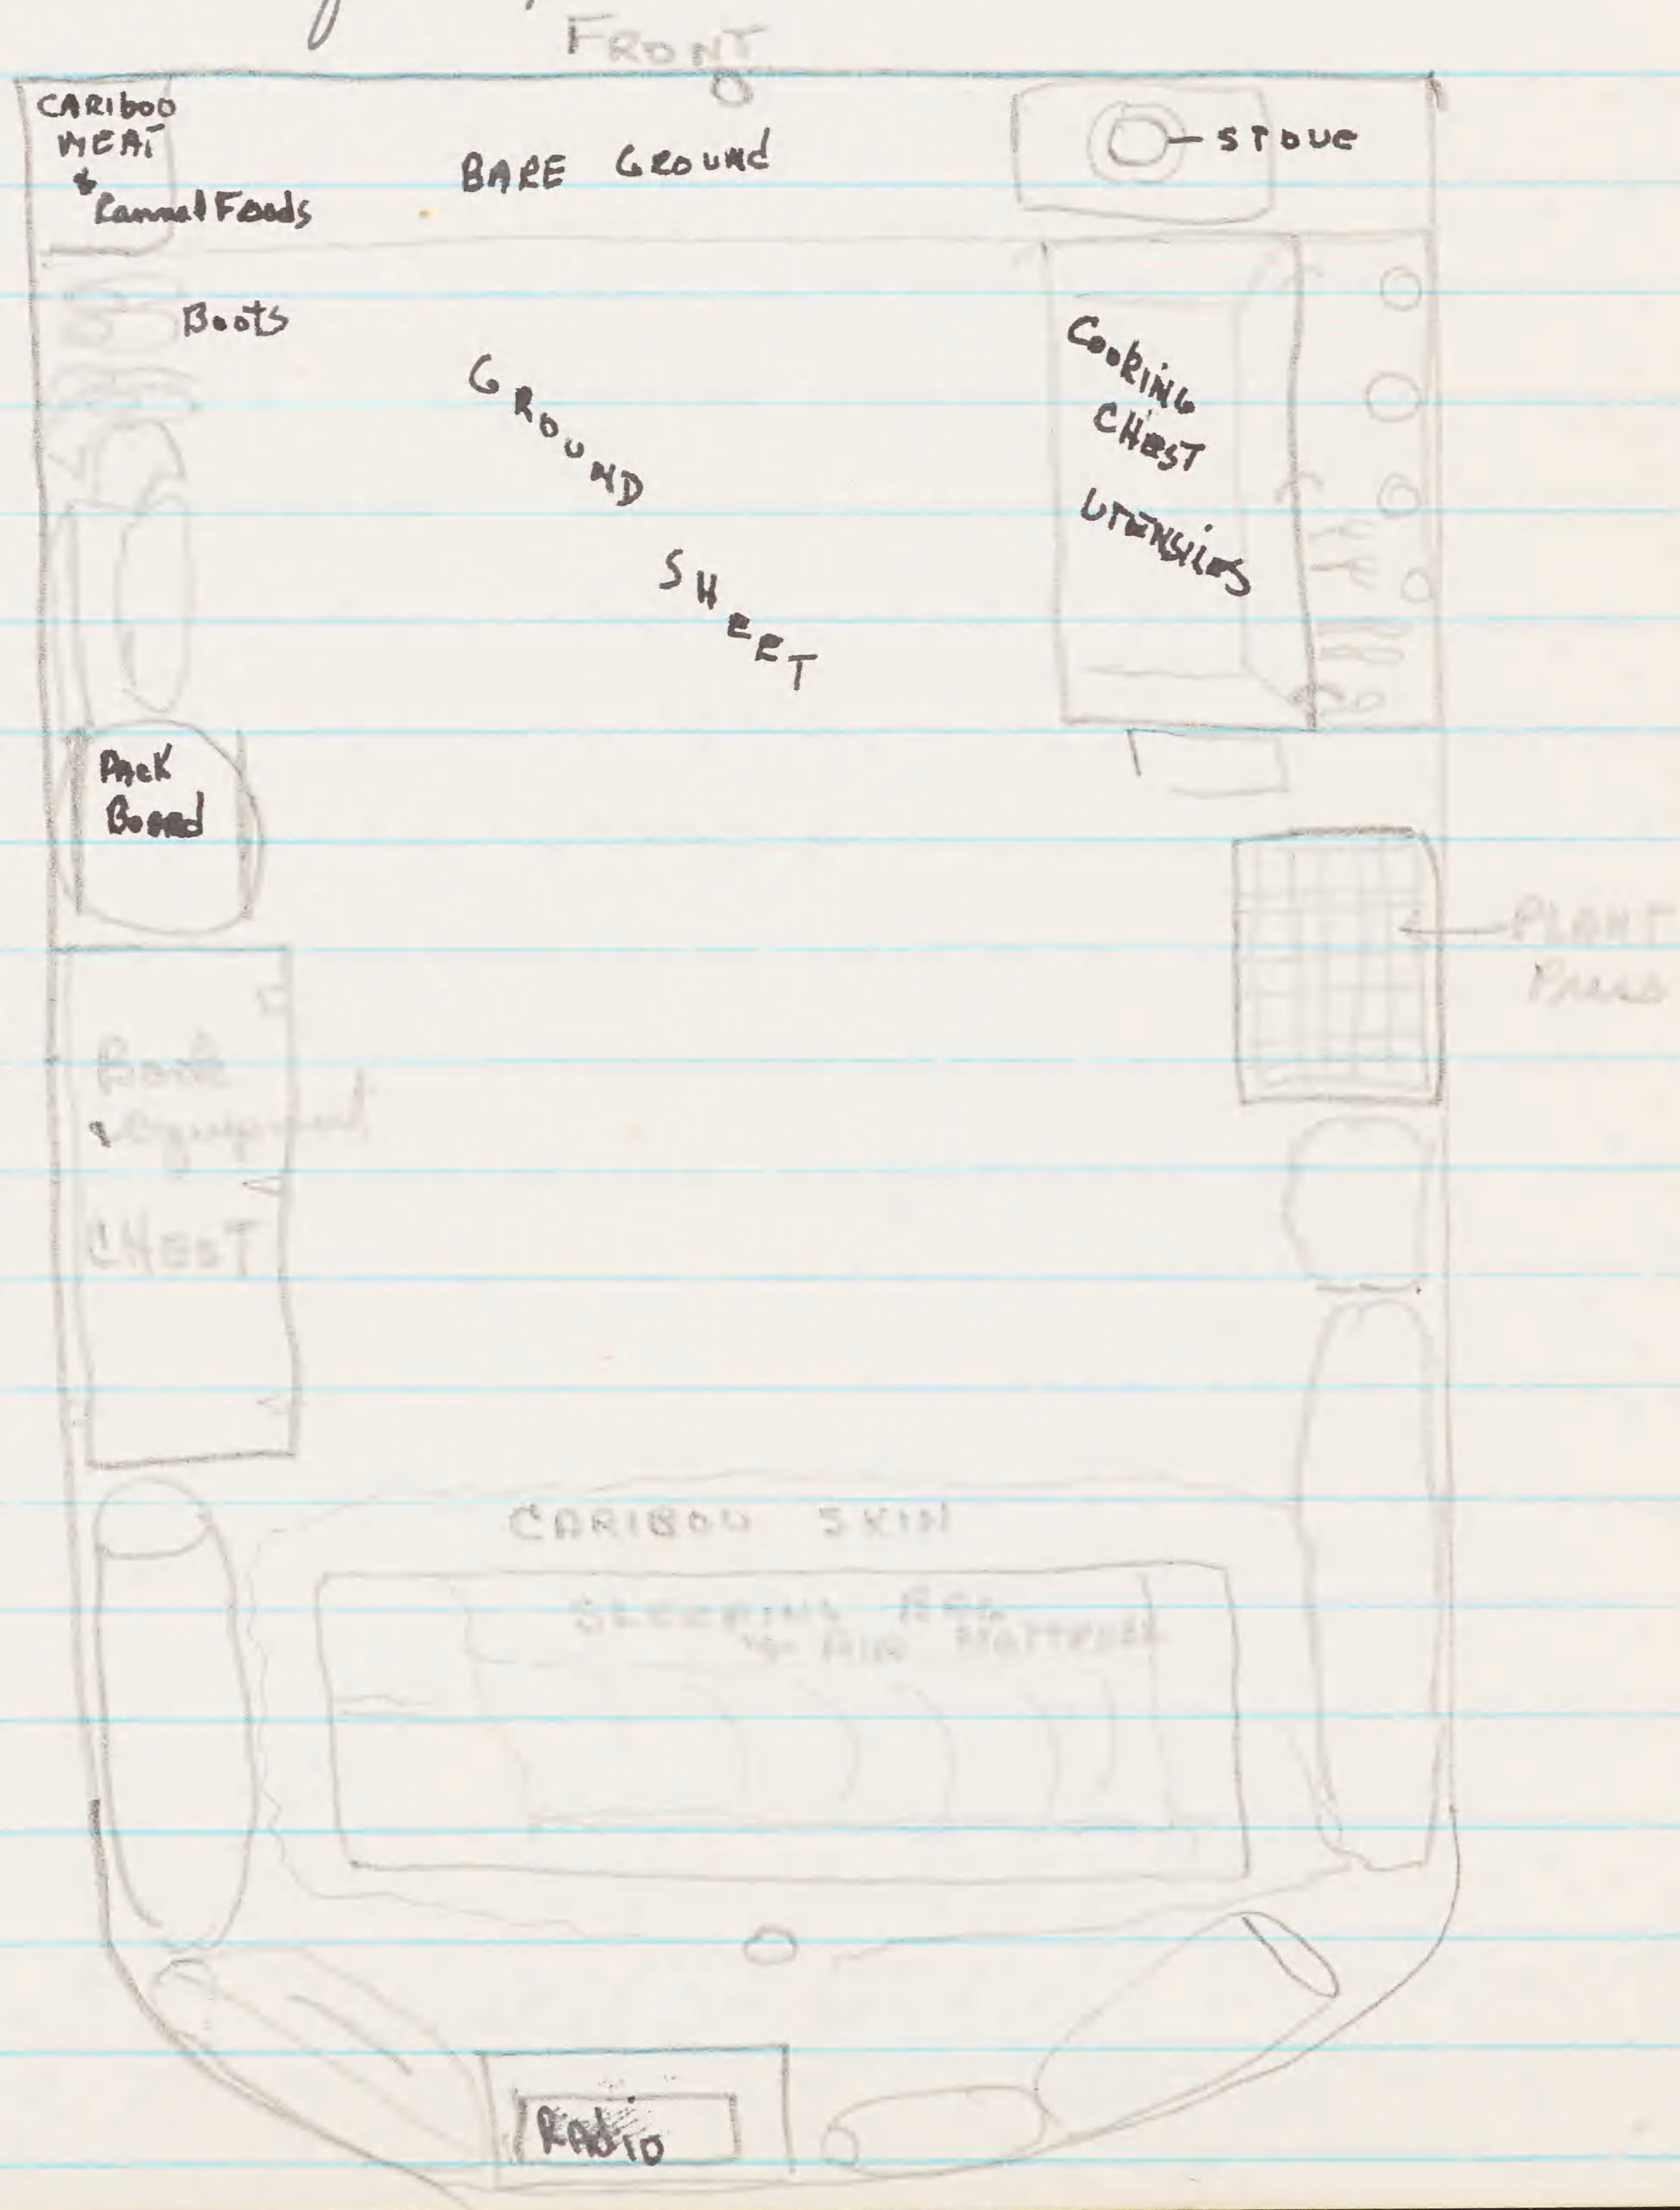 FRONT
CARIBOO
MEAT
&
Canned Foods
BARE GROUND
STOVE
Boots
GROUND
SHEET
COOKING
CHEST
UTENSILES
PACK
Board
PLANT
Press
Book
& equipment
CHEST
CARIBOU SKIN
SLEEPING BAG
& AIR MATTRESS
RADIO